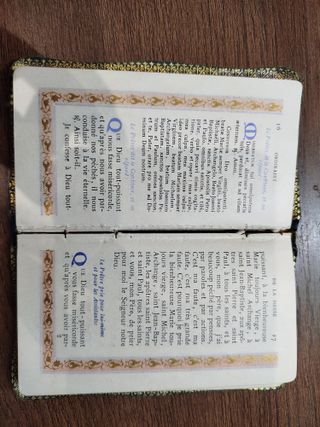 16 ORDINAIRE
Deus et, dimissis
æternam. Amen.
Confiteor Deo omnipotenti,
beatæ Mariæ semper Virgini, beato
Michaeli Archangelo, beato Joanni
Baptistæ, sanctis Apostolis Petro
et Paulo, omnibus Sanctis, et tibi,
pater, quia peccavi nimis cogita-
tione, verbo et opere: mea culpa,
mea culpa, mea maxima culpa.
Ideo precor beatam Mariam semper
Virginem, beatum Michaelem
Archangelum, beatum Joannem
Baptistam, sanctos Apostolos
Petrum et Paulum, omnes Sanctos,
et te, Pater, orare pro me ad Do-
minum Deum nostrum.
QUE Dieu tout-puissant
nous fasse miséricorde,
et qu'après nous avoir par-
donné nos péchés, il nous
conduise à la vie éternelle.
Ainsi soit-il.
Je confesse à Dieu tout-
DE LA MESSE 17
puissant, à la bienheureuse
Marie toujours Vierge, à
saint Michel Archange, à
saint Jean-Baptiste, aux apô-
tres saint Pierre et saint
Paul, à tous les saints, et à
vous mon père, que j'ai
beaucoup péché par pensées,
par paroles et par actions.
C'est ma faute, c'est ma
faute, c'est ma très grande
faute. C'est pourquoi je prie
la bienheureuse Marie tou-
jours vierge, saint Michel
Archange, saint Jean-Bap-
tiste, les apôtres saint Pierre
et saint Paul, tous les saints,
et vous, mon Père, de prier
pour moi le Seigneur notre
Dieu.
Le Prêtre prie pour lui-même
et pour les Assistants
QUE Dieu tout-puissant
vous fasse miséricorde
et qu'après vous avoir par-
2